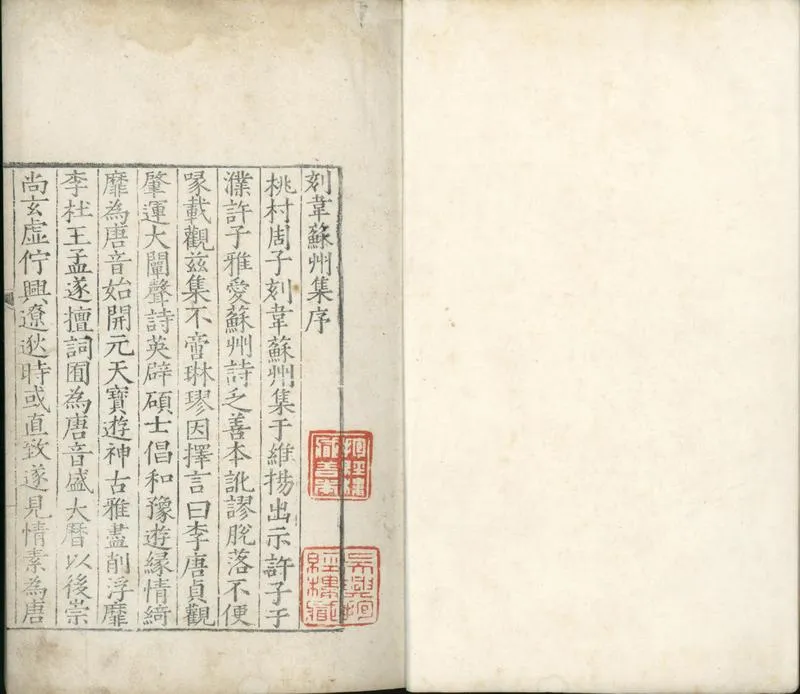 刻韋蘇州集序
桃村周子刻韋蘇州集于維揚出示許子于
濮許子雅愛蘇州詩乏善本訛謬脫落不便
喙載觀兹集不啻琳璆因擇言曰李唐貞觀
肇運大闡聲詩英辟碩士倡和豫遊緣情綺
靡為唐音始開元天寶遊神古雅盡削浮靡
李杜王孟遂擅詞囿為唐音盛大曆以後崇
尚玄虛佇興遼逖時或直致遂見情素為唐
抱經樓
藏善本
吳興抱
經樓藏